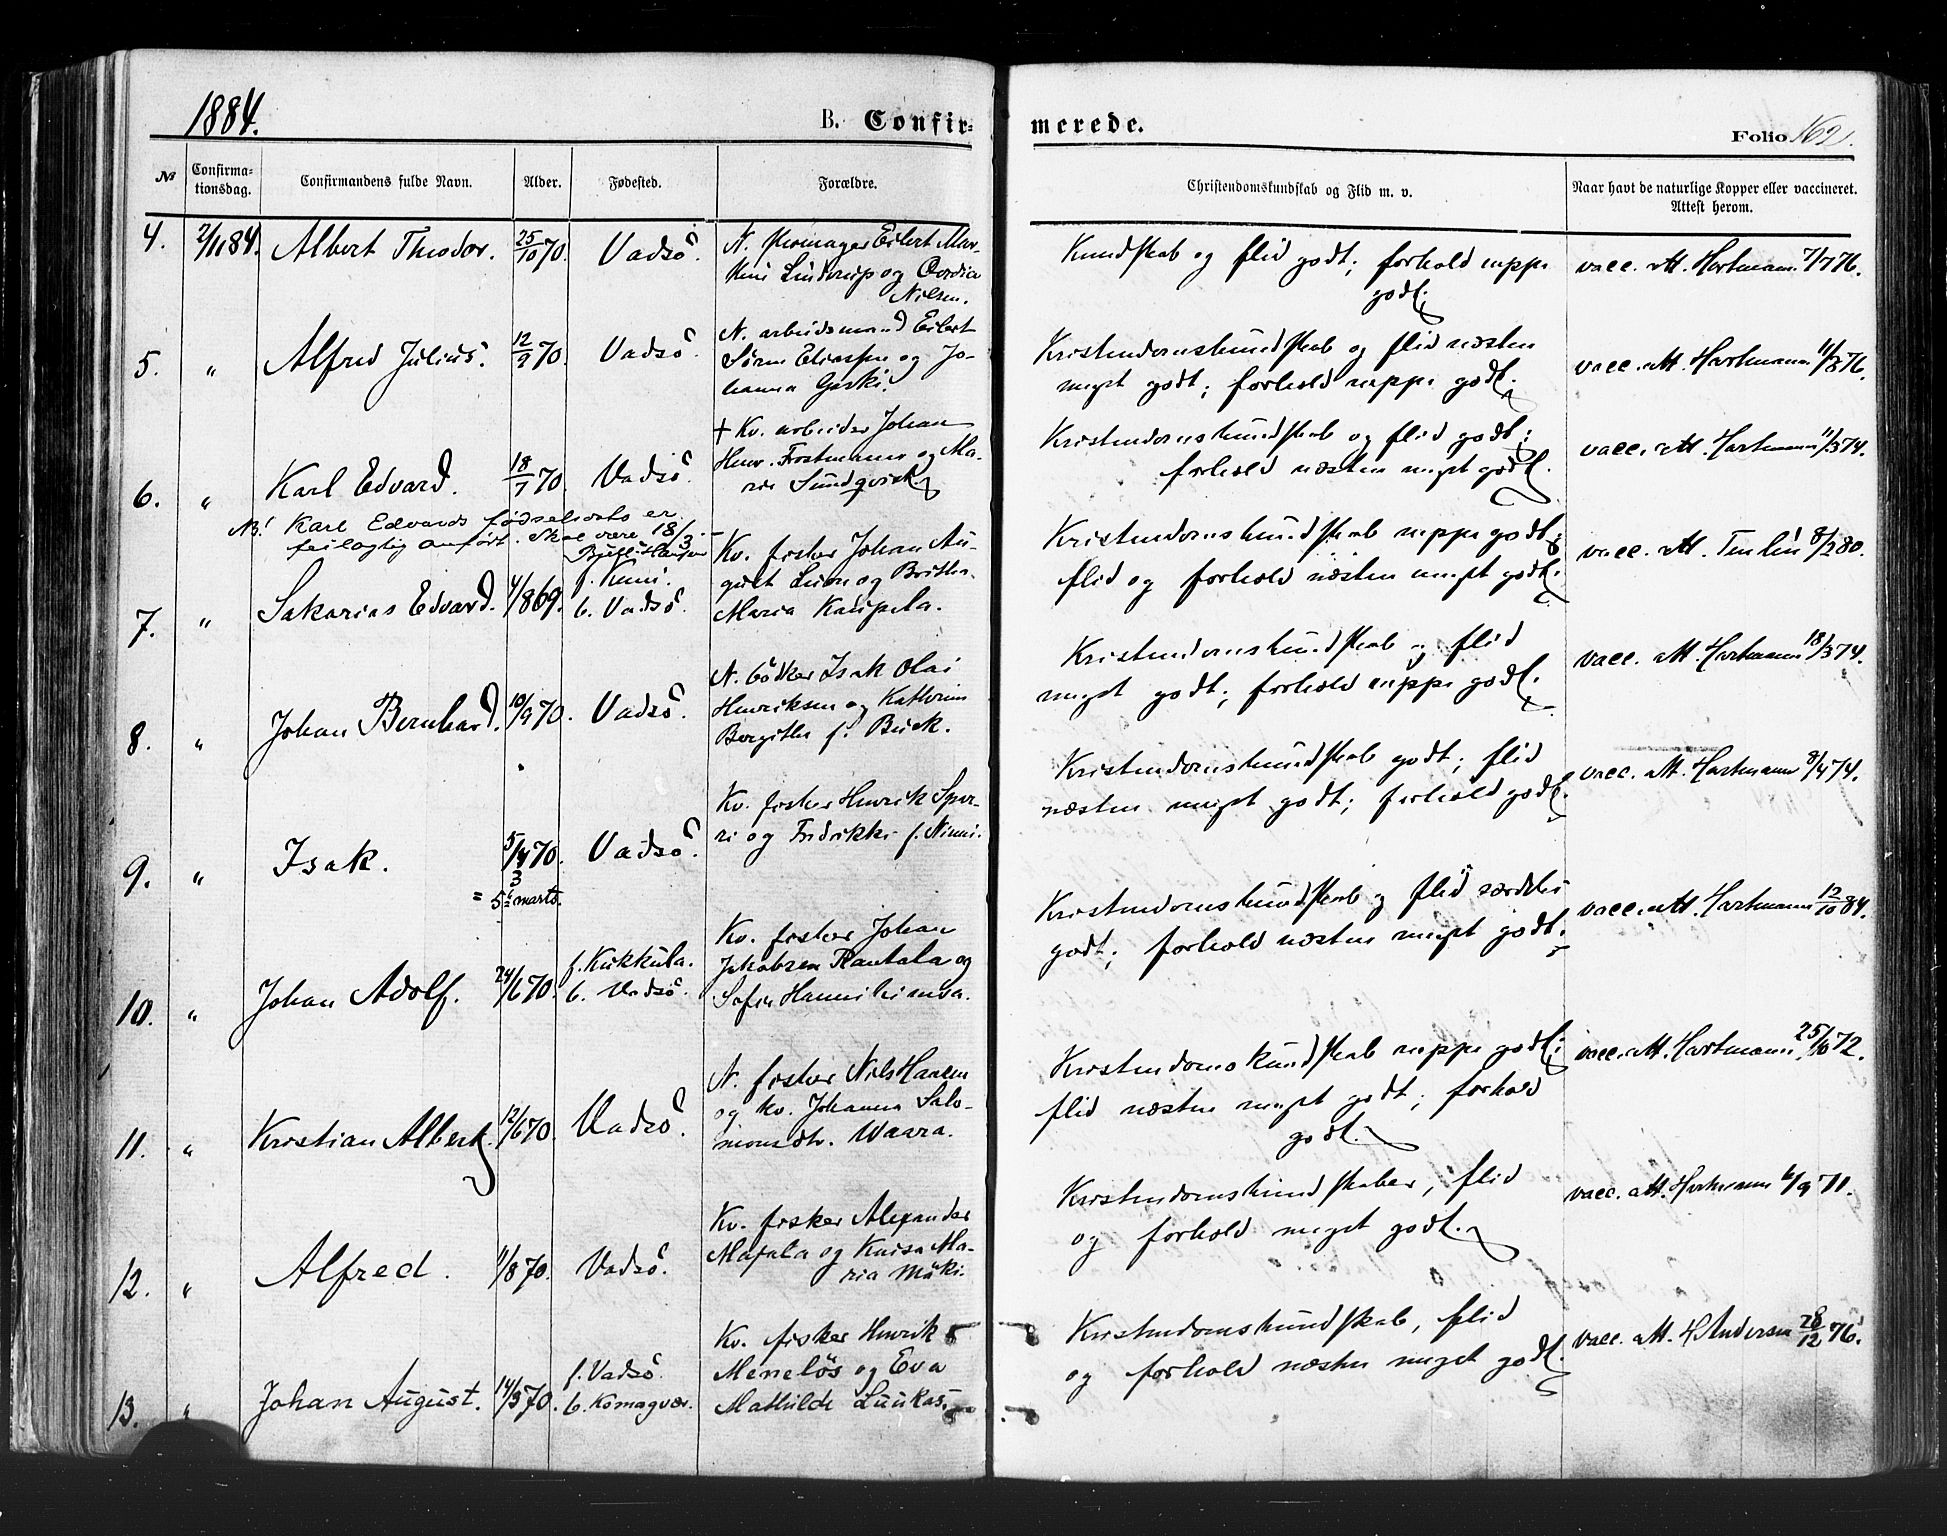 1884.
B. Confir-
merede.
Folio 162.
№
Confirma-
tionsdag.
Confirmandens fulde Navn.
Alder.
Fødested.
Forældre.
Christendomskundskab og Flid m. v.
Naar havt de naturlige Kopper eller vaccineret.
Attest herom.
4. 2/11 84. Albert Theodor. 25/10 70. Vadsö.
N. Eilert Mar-
Linderup og
Nilsen.
Kundskab og flid godt; forhold neppe
godt.
vacc. att. Hartmann 7/7 76.
5. " Alfred Julius. 12/9 70. Vadsö.
N. arbeidsmand Eilert
Sören og Jo-
hanna
Kristendomskundskab og flid næsten
meget godt; forhold neppe godt.
vacc. att. Hartmann 11/8 76.
6. " Karl Edvard. 18/7 70. Vadsö.
† Kv. arbeider Johan
Henr. Frostmann og Ma-
rie Sundqvist
Kristendomskundskab og flid godt;
forhold næsten meget godt.
vacc. att. Hartmann 11/3 74.
NB! Karl Edvards fødselsdato er
feilagtig anført. Skal være 18/3.
7. " Sakarias Edvard. 4/8 69. f. Kemi.
b. Vadsö.
Kv. fisker Johan Au-
gust og Britha
Maria Kaupela.
Kristendomskundskab neppe godt;
flid og forhold næsten meget godt.
vacc. att. 8/2 80.
8. " Johan Bernhard. 10/9 70. Vadsö.
N. bödker Isak Olai
Henriksen og Kathrine
Bergitte f. Buck.
Kristendomskundskab og flid
meget godt; forhold neppe godt.
vacc. att. Hartmann 18/3 74.
9. " Isak. 5/4 70. Vadsö.
3
= 5te marts.
Kv. fisker Henrik
og Fredrikke f. Niemi.
Kristendomskundskab godt; flid
næsten meget godt; forhold godt.
vacc. att. Hartmann 8/4 74.
10. " Johan Adolf. 24/6 70. f. Kukkula.
b. Vadsö.
Kv. fisker Johan
Jakobsen Rautala og
Sofie Hannikimsa.
Kristendomskundskab og flid særdeles
godt; forhold næsten meget godt.
vacc. att. Hartmann 12/10 84.
11. " Kristian Albert. 12/6 70. Vadsö.
N. fisker Nils Hansen
og kv. Johanna Salo-
monsdtr. Waara.
Kristendomskundskab neppe godt;
flid næsten meget godt; forhold
godt.
vacc. att. Hartmann 25/10 72.
12. " Alfred. 11/8 70. Vadsö.
Kv. fisker Alexander
Majala og Kaisa Ma-
ria Mäki.
Kristendomskundskaber, flid
og forhold meget godt.
vacc. att. Hartmann 6/9 71.
13. " Johan August. 14/3 70. f. Vadsö.
b. Komagvær.
Kv. fisker Henrik
Meneløs og Eva
Mathilde Luukas.
Kristendomskundskab, flid
og forhold næsten meget godt.
vacc. att. H Andersen 28/12 76.